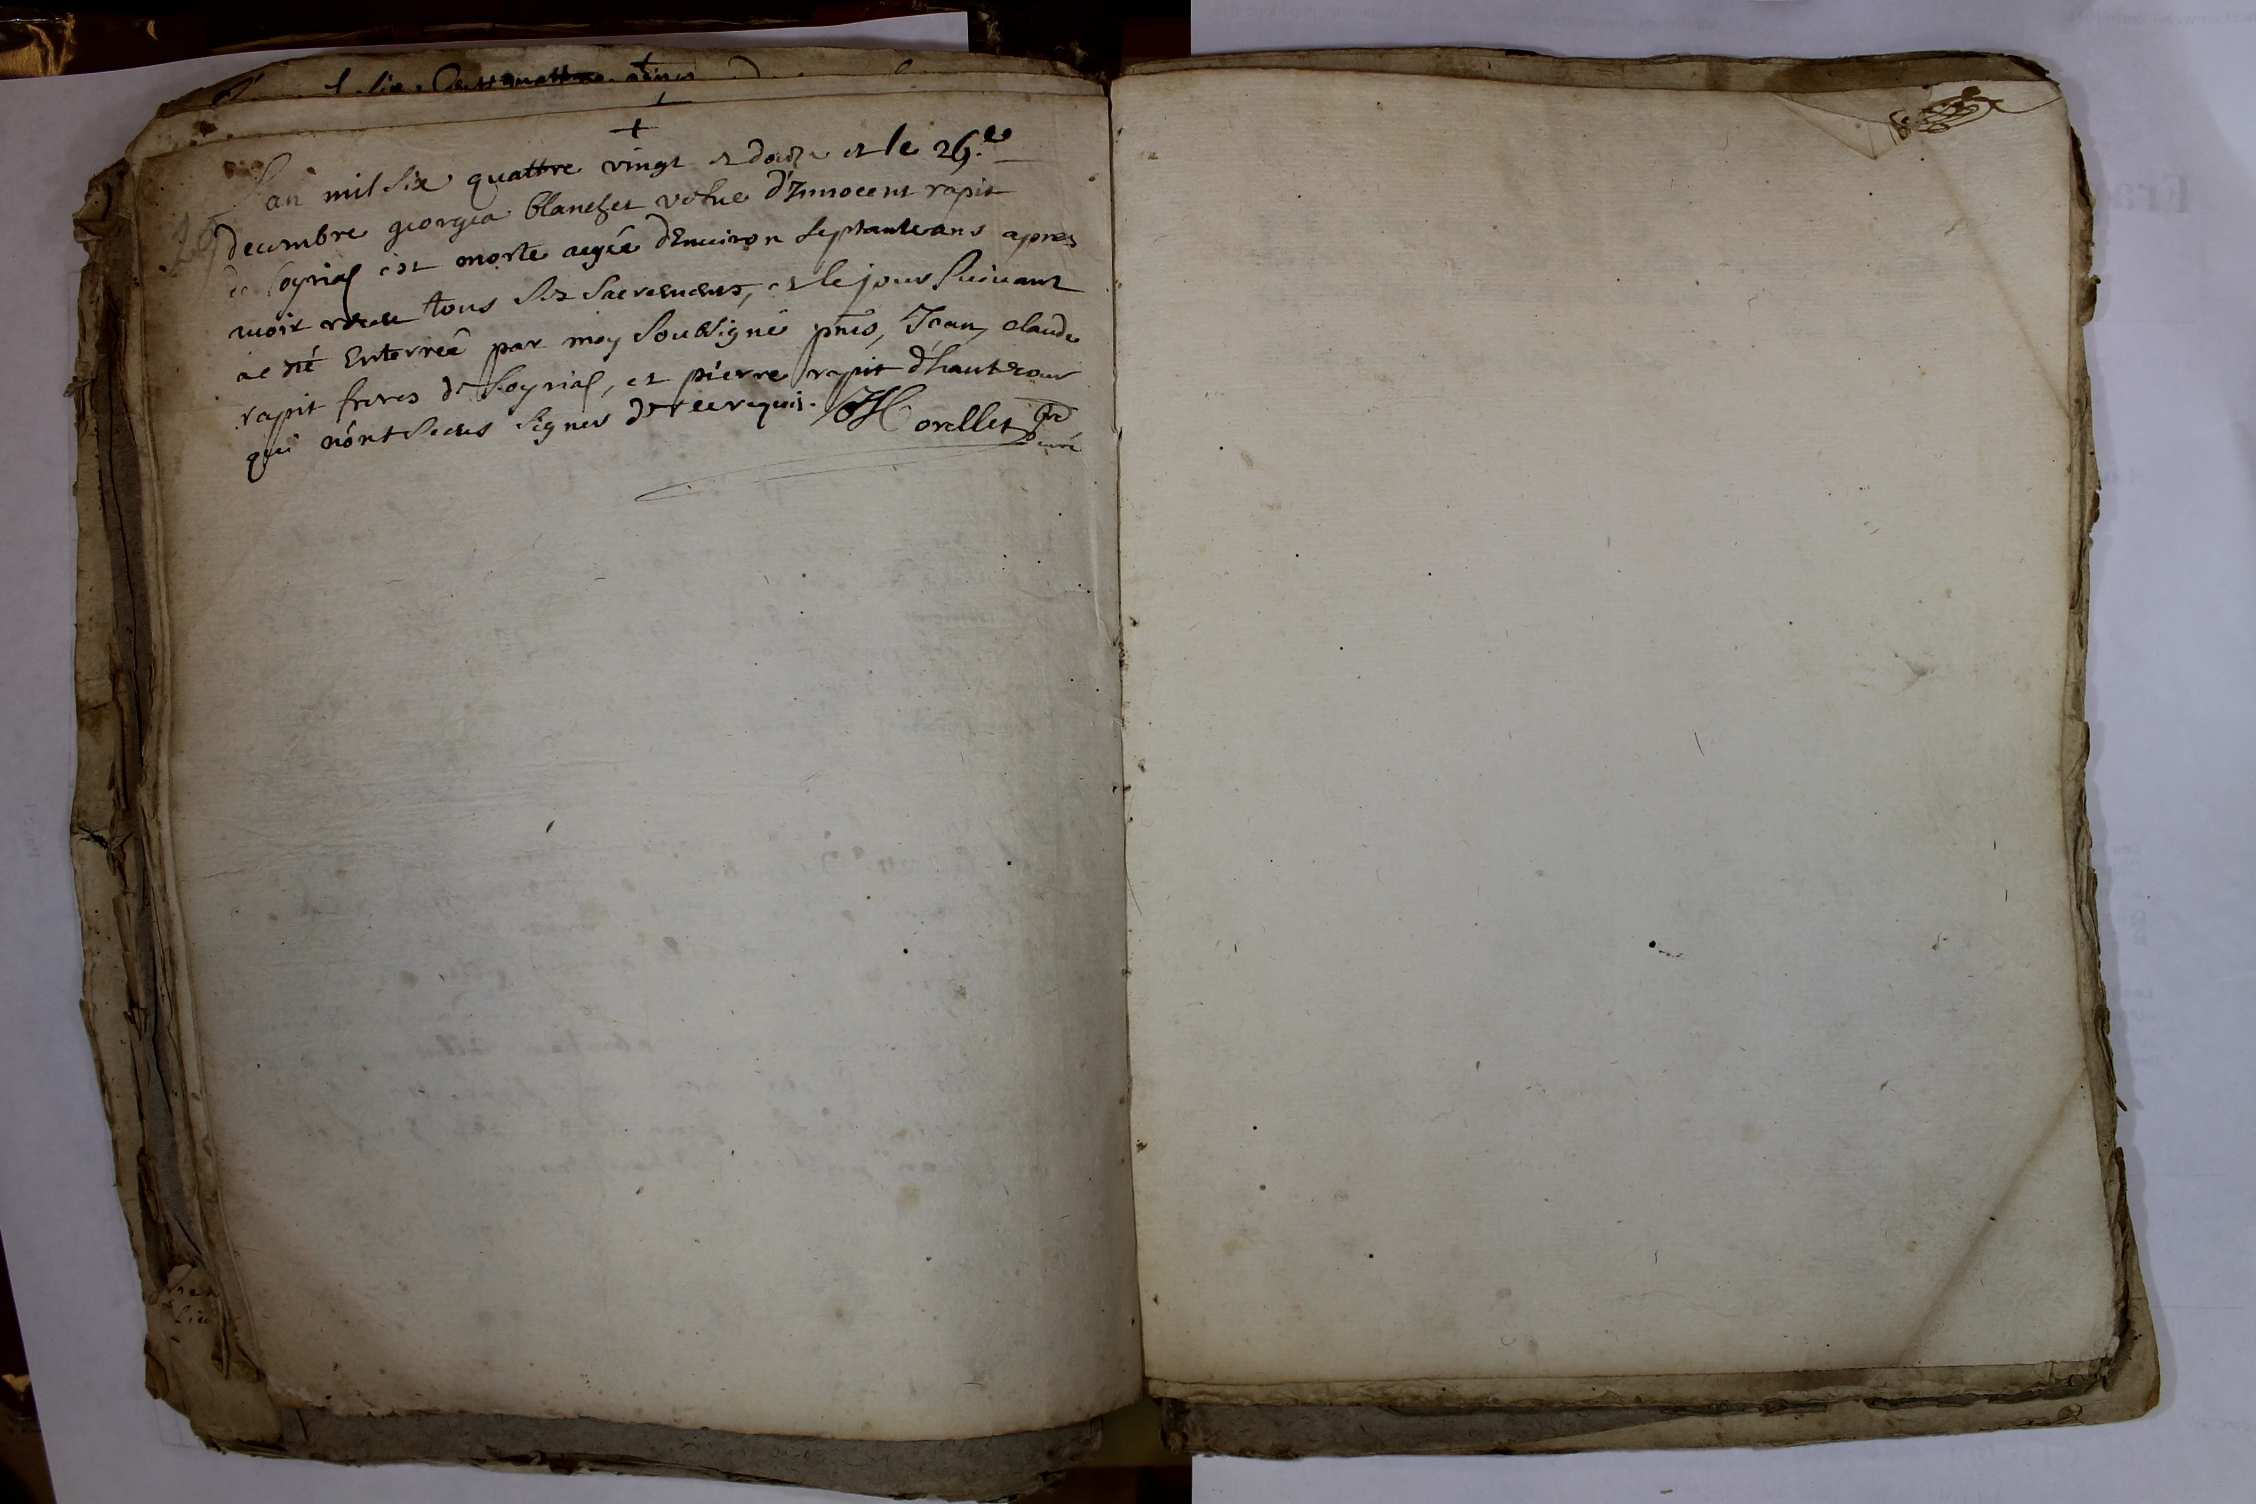 +
L'an mil six quattre vingt et douze et le 26.e
decembre georgea blanchet vefue d'Innocent rapit
de soyria est morte aegée d'Enuiron septante ans apres
auoir receu tous ses sacrements, et le jour suiuant
a esté Enterreé par moy soubsigné pnts, Jean, claude
rapit freres de soyria, et pierre rapit d'hautecour
qui n'ont sceus signer de ce requis. Morellet
curé